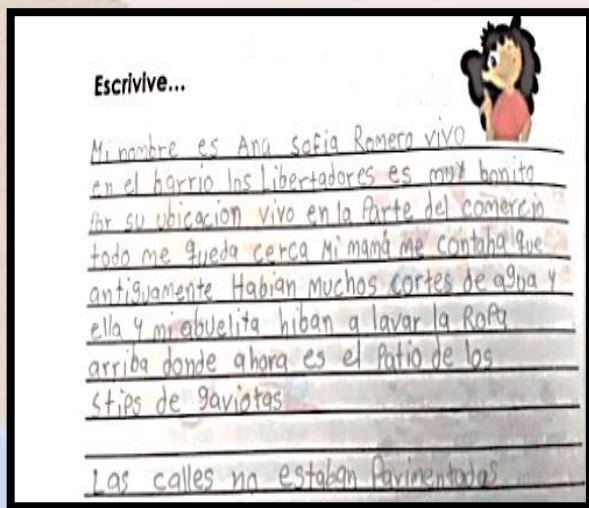 Escrivive...
Mi nombre es Ana Sofia Romero vivo
en el barrio los Libertadores es muy bonito
por su ubicacion vivo en la Parte del comercio
todo me queda cerca Mi mamá me contaba que
antiguamente Habian Muchos cortes de agua y
ella y mi abuelita hiban a lavar la Ropa
arriba donde ahora es el Patio de los
sties de gaviotas
Las calles no estaban Pavimentadas